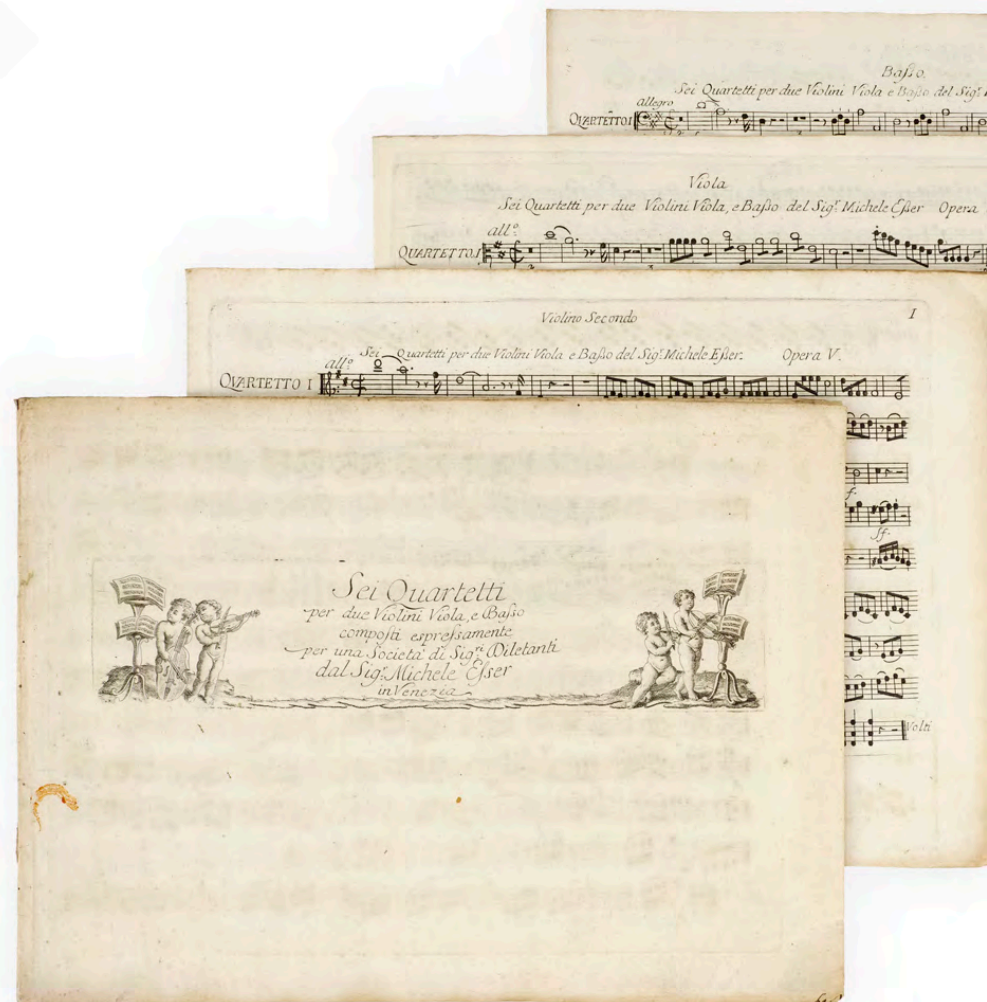 Baſso.
Sei Quartetti per due Violini Viola e Baſso del Sigr.
allegro
QVARTETTO I
Viola
Sei Quartetti per due Violini Viola, e Baſso del Sigr. Michele Eſser Opera
allo.
QUARTETTO. I
Violino Secondo
I
Sei Quartetti per due Violini Viola e Baſso del Sigr. Michele Eſser. Opera V.
allo.
QVARTETTO I
f.
ſf.
Volti
Sei Quartetti
per due Violini Viola, e Baſso
compoſti espreſsamente
per una Società di Sigri. Diletanti
dal Sigr. Michele Eſser
in Venezia